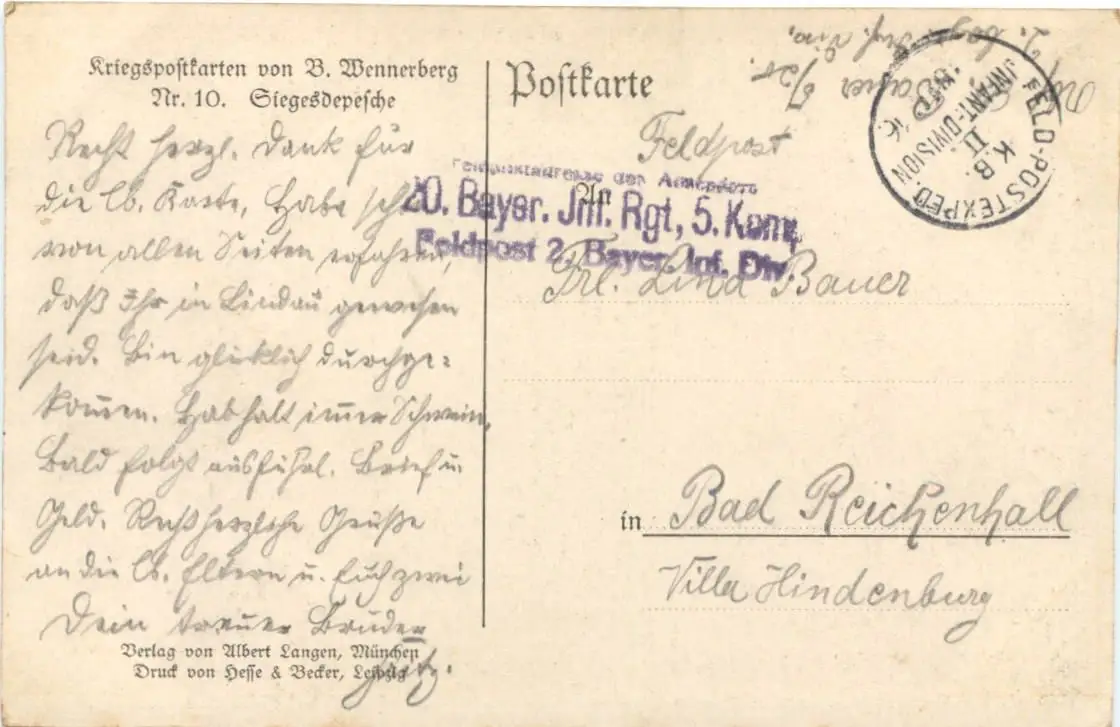 Kriegspostkarten von B. Wennerberg
Nr. 10. Siegesdepesche
Recht herzl. Dank für
die lb. Karte, Habe sch
von allen Seiten erfahren,
daß Ihr in Lindau gewesen
seid. Bin glücklich durchge-
kommen. Hab halt immer Schwein,
Bald folgt ausführl. Brief u.
Geld. Recht herzliche Grüße
an die lb. Eltern u. Euch zwei
Dein treuer Bruder
Verlag von Albert Langen, München
Druck von Hesse & Becker, Leipzig
Postkarte
Bauer
2. bayr. Inf. Div.
Feldpost
An
20. Bayer. Inf. Rgt, 5. Komp.
Feldpost 2. Bayer. Inf. Div.
Frl. Lina Bauer
in Bad Reichenhall
Villa Hindenburg
FELD-POSTEXPED.
K. B.
II
INFANT-DIVISION